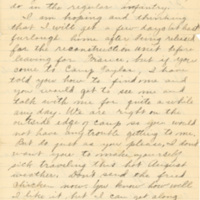 do in the regular infantry.
I am hoping and thinking
that I will get a few days at best
furlough home after being relieved
for the reconstruction unit before
leaving for France, but if you
come to Camp Taylor, I have
told you how to find me and
you would get to see me and
talk with me for quite a while
any day. We are right on the
outside edge of camp so you would
not have any trouble getting to me.
But do just as you please I don't
want you to make yourself
sick traveling this hot
weather. Don't send the fried
chicken now you know how well
I like it, but I can get along